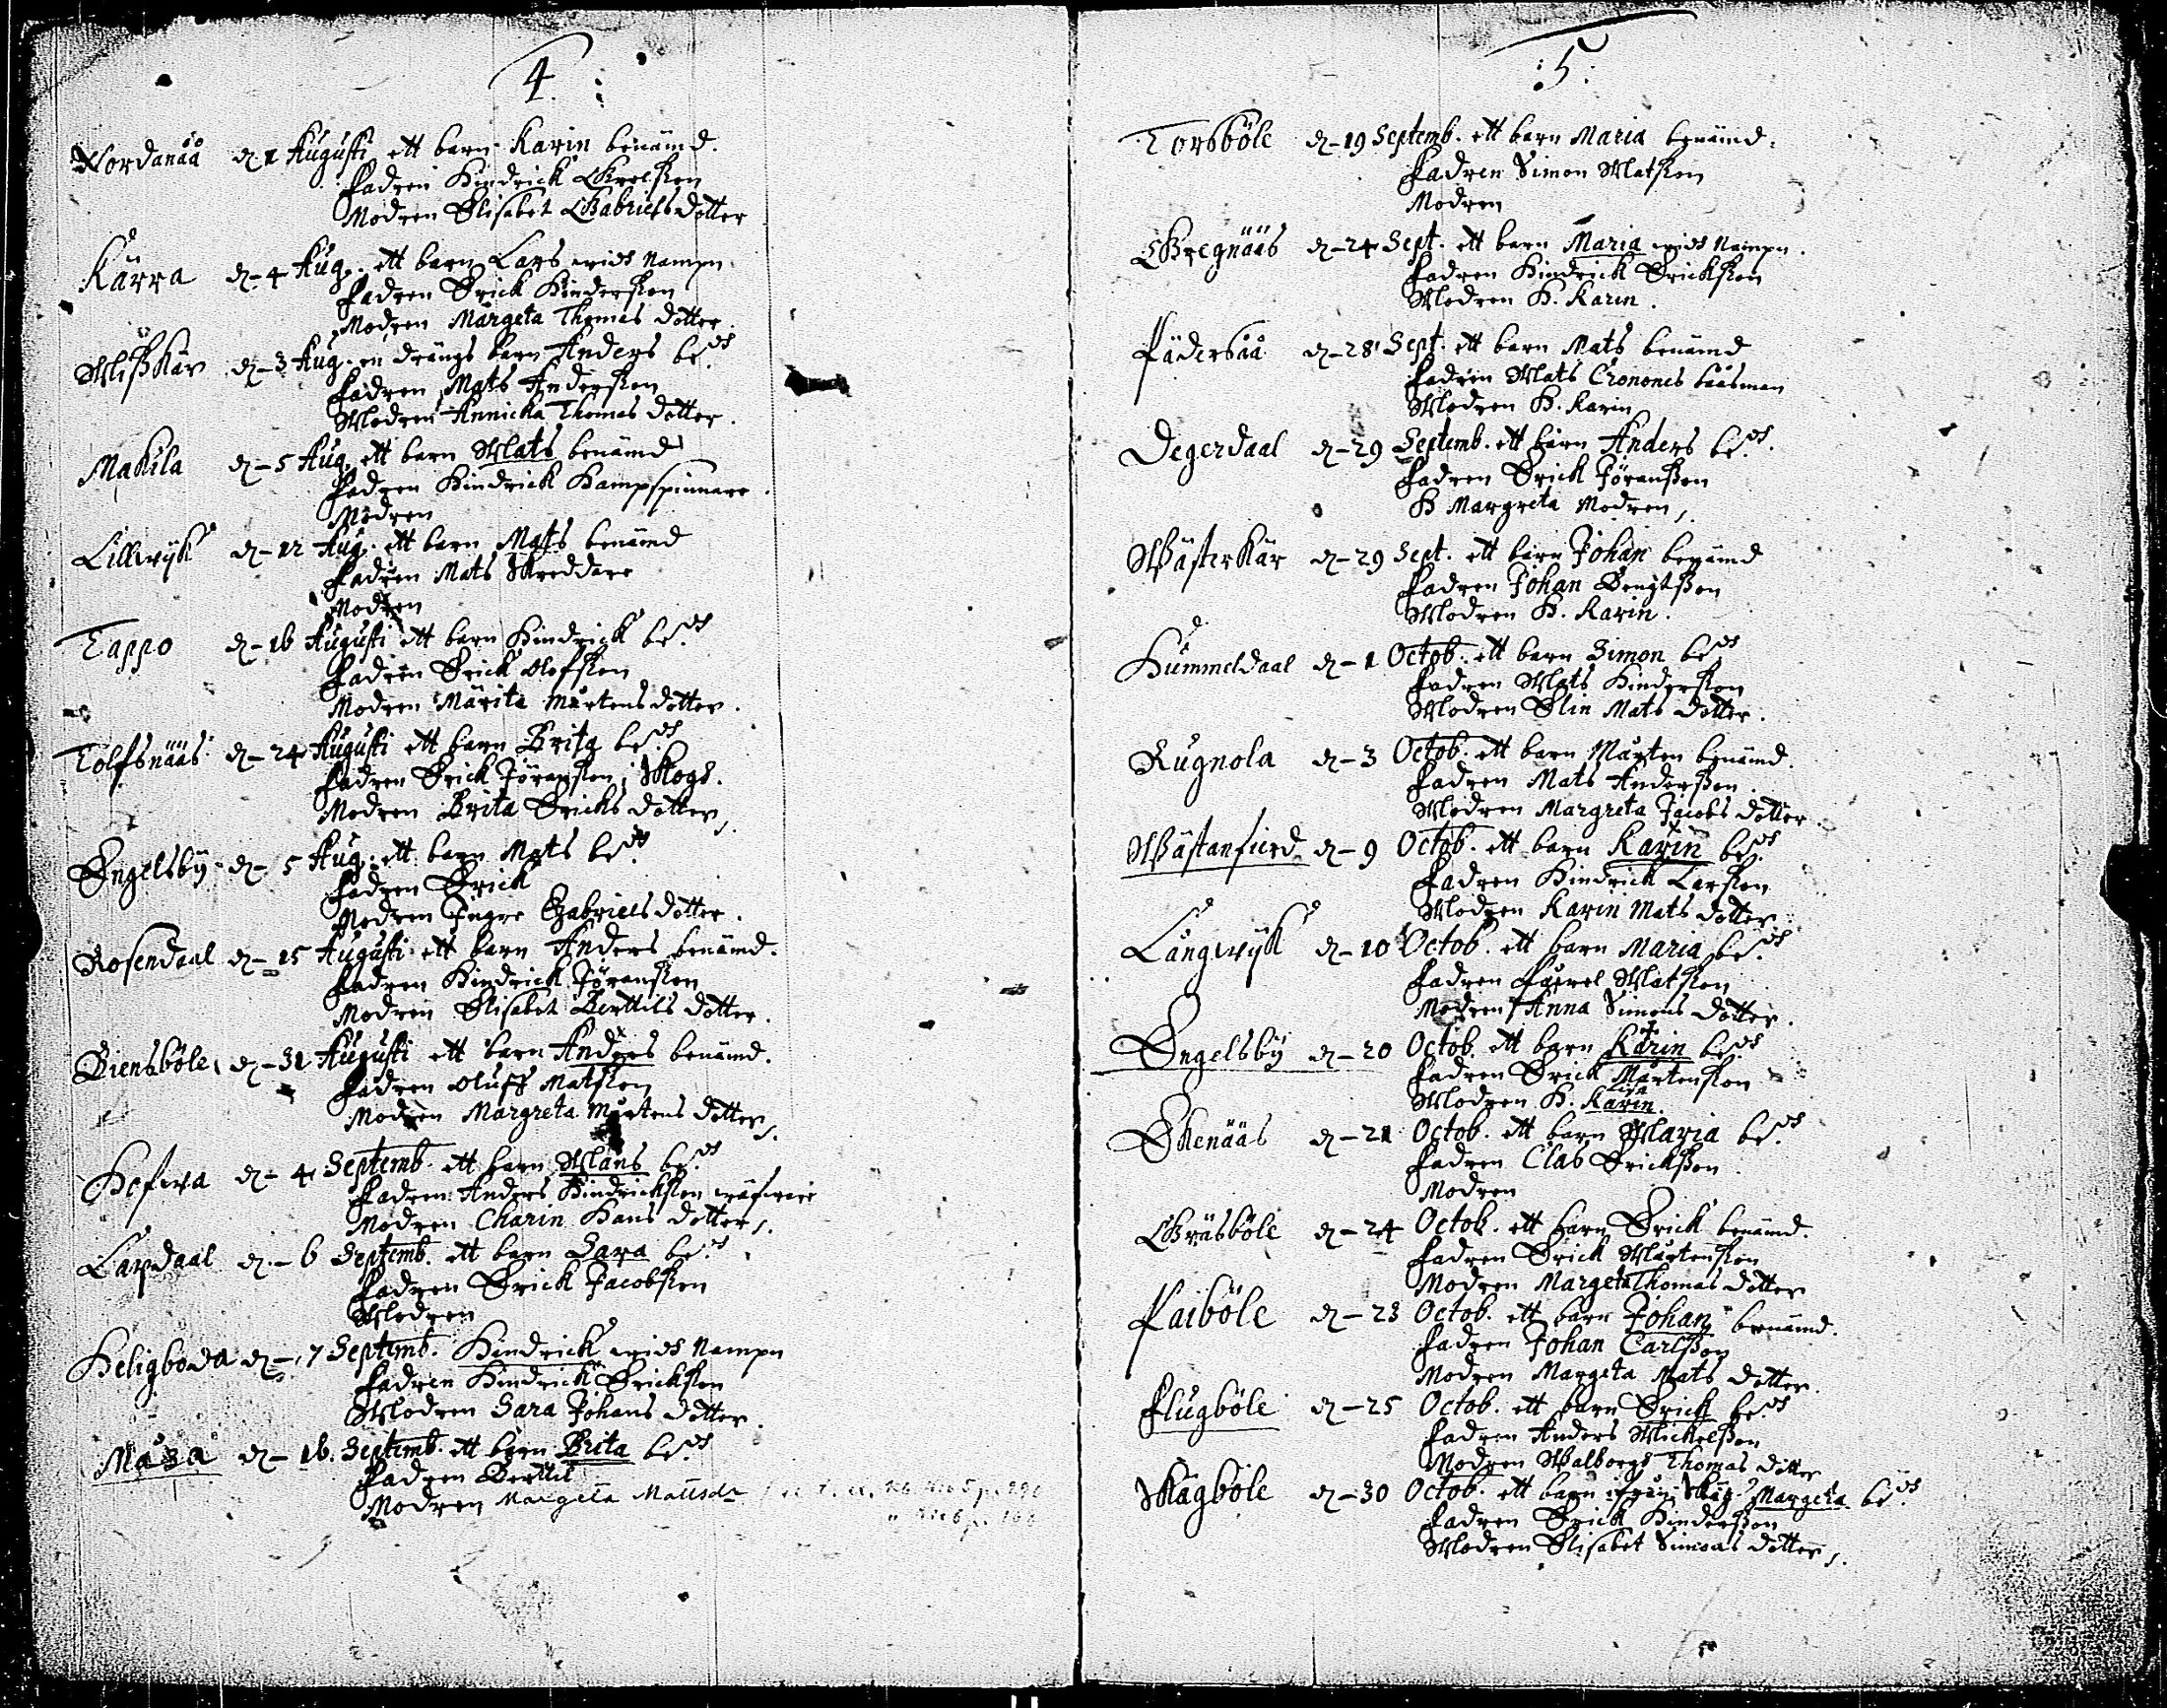 4
Nordanåå d. 1 Augusti ett barn Karin benämd.
Fadren Hindrick Grelsson
Modren Elisabet Gabrielsdotter
Kärra d. 4 Aug. ett barn Lars widh Nampn
Fadren Erick Hindersson
Modren Margeta Thomas dotter.
Misskär d. 3 Aug. en drängs barn Anders be:dh
Fadren Mats Andersson
Modren Annicka Thomas dotter.
Makila d. 5 Aug. ett barn Mats benämd
Fadren Hindrick Hampspinnare.
Modren
Lillwyk d. 12 Aug. ett barn Mats benämd
Fadren Mats Skreddare
Modren
Tappo d. 16 Augusti ett barn Hindrick be:dh
Fadren Erick Olofsson
Modren Marita Mårtens dotter.
Tolfsnääs d. 24 Augusti ett barn Brita be:dh
Fadren Erick Jöransson, Skogs.
Modren Brita Ericks dotter,
Engelsby d. 5 Aug. ett barn Mats be:dh
Fadren Erick
Modren Ingre Gabriels dotter.
Rosendaal d. 15 Augusti ett barn Anders benämd.
Fadren Hindrick Jöransson
Modren Elisabet Berttils dotter.
Biensböle, d. 31 Augusti ett barn Anders benämd.
Fadren Oluff Matsson
Modren Margreta Mårtens dotter,
Hofwa d. 4 Septemb. ett barn Måns be:dh
Fadren Anders Hindricksson
Modren Charin Hans dotter,
Lardaal d. 6 Septemb. ett barn Sara be:dh
Fadren Erick Jacobsson
Modren
Heligboda d. 7 Septemb. Hindrick widh Nampn
Fadren Hindrick Ericksson
Modren Sara Johans dotter.
Måsa d. 16. Septemb. ett barn Brita be:dh
Fadren Berttil
Modren Margeta Matsdr
:5:
Torsböle d. 19 Septemb. ett barn Maria benämd.
Fadren Simon Matsson
Modren
Gregnääs d. 24 Sept. ett barn Maria widh Nampn.
Fadren Hindrick Ericksson
Modren H. Karin.
Pädersåå d. 28 Sept. ett barn Mats benämd
Fadren Mats Cronones bååsman
Modren H. Karin
Degerdaal d. 29 Septemb. ett barn Anders be:dh
Fadren Erick Jöransson
H Margreta Modren,
Wästerkär d. 29 Sept. ett barn Johan benämd
Fadren Johan Bengtsson
Modren H. Karin.
Hummeldaal d. 1 Octob. ett barn Simon be:dh
Fadren Mats Hindersson
Modren Elin Mats dotter.
Rugnola d. 3 Octob. ett barn Mårten benämd.
Fadren Mats Andersson.
Modren Margreta Jacobs dotter
Wästanfierd d. 9 Octob. ett barn Karin be:dh
Fadren Hindrick Larsson
Modren Karin Mats dotter.
Långwyk d. 10 Octob. ett barn Maria be:dh
Fadren Påwel Matsson
Modren Anna Simons dotter.
Engelsby d. 20 Octob. ett barn Karin be:dh
Fadren Erick Mårtensson
Modren H. Karin.
Ekenääs d. 21 Octob. ett barn Maria be:dh
Fadren Clas Ericksson
Modren
Gräsböle d. 24 Octob. ett barn Erick benämd.
Fadren Erick Mårtensson
Modren Margeta Thomas dotter
Paiböle d. 23 Octob. ett barn Johan benämd.
Fadren Johan Carlsson
Modren Margeta Mats dotter.
Flugböle d. 25 Octob. ett barn Erick be:dh
Fadren Anders Mickelsson
Modren Walborgh Thomas dotter
Skägböle d. 30 Octob. ett barn Margeta be:dh
Fadren Erick Hindersson
Modren Elisabet Simons dotter,